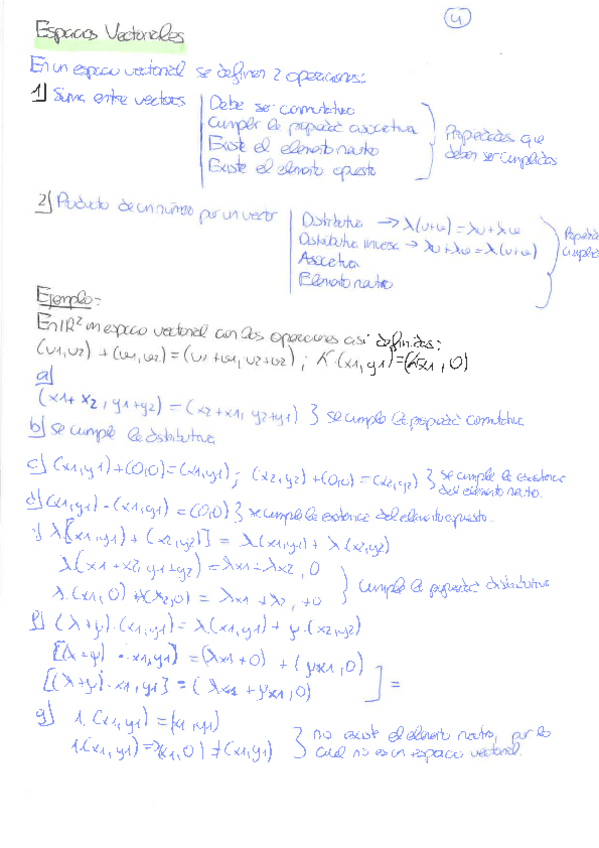 4
Espacios Vectoriales
En un espacio vectorial se definen 2 operaciones:
1) Suma entre vectores
Debe ser conmutativa
Cumplir la propiedad asociativa
Existe el elemento neutro
Existe el elemento opuesto
Propiedades que
deben ser cumplidas
2) Producto de un número por un vector
Distributiva → λ(v+w) = λv + λw
Distributiva inversa → λv + λw = λ(v+w)
Asociativa
Elemento neutro
Ejemplo:
En IR² un espacio vectorial con dos operaciones así definidas:
(v1, v2) + (w1, w2) = (v1 + w1, v2 + w2) ; K·(x1, y1) = (Kx1, 0)
a)
(x1 + x2, y1 + y2) = (x2 + x1, y2 + y1) } se cumple la propiedad conmutativa
b) se cumple la distributiva
c) (x1, y1) + (0,0) = (x1, y1) ; (x2, y2) + (0,0) = (x2, y2) } se cumple la existencia
del elemento neutro.
d) (x1, y1) - (x1, y1) = (0,0) } se cumple la existencia del elemento opuesto.
λ[(x1, y1) + (x2, y2)] = λ(x1, y1) + λ(x2, y2)
λ(x1 + x2, y1 + y2) = λx1 + λx2, 0
λ·(x1, 0) + λ(x2, 0) = λx1 + λx2, +0
} cumple la propiedad distributiva
f) (λ + μ)·(x1, y1) = λ(x1, y1) + μ·(x2, y2)
[(λ + μ) · x1, y1] = (λx1 + 0) + (μx1, 0)
[(λ + μ) · x1, y1] = (λx1 + μx1, 0)
] =
g) 1·(x1, y1) = (x1, y1)
1·(x1, y1) => (x1, 0) ≠ (x1, y1)
} no existe el elemento neutro, por lo
cual no es un espacio vectorial.